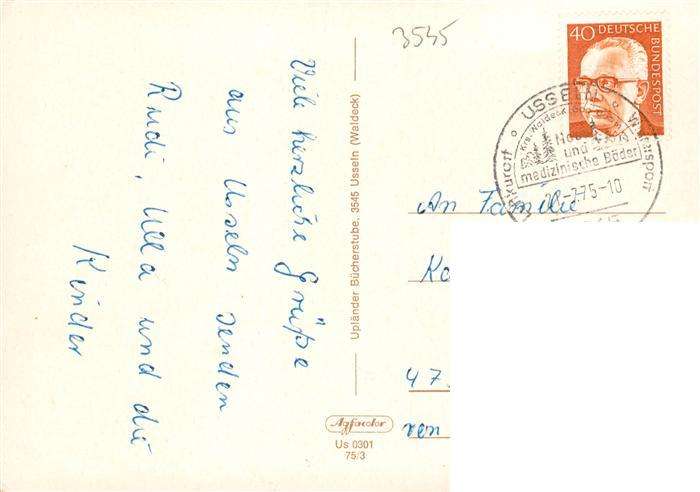 Viele herzliche Grüße
aus Usseln senden
Rudi, Ulla und die
Kinder
Upländer Bücherstube, 3545 Usseln (Waldeck)
Agfacolor
Us 0301
75/3
3545
40 DEUTSCHE BUNDESPOST
USSELN
und
medizinische Bäder
-7.75-10
An Familie
47